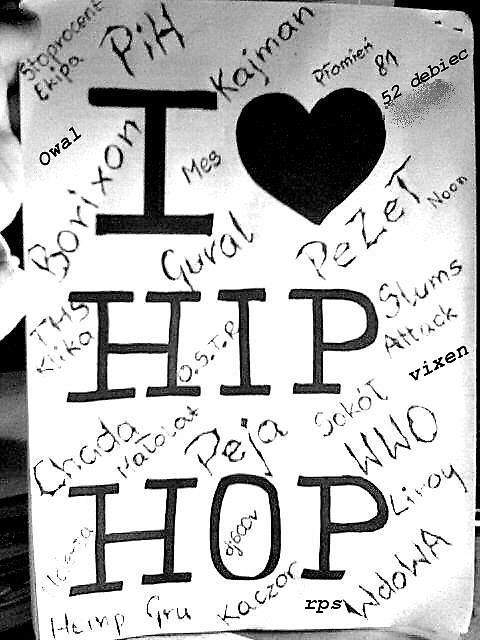 Stoprocent
Ekipa
PiH
Kajman
Płomień
81
52 debiec
Owal
I
Borixon
Mes
Gural
PeZeT
Noon
THS
Klika
HIP
O.S.T.R.
Slums
Attack
vixen
Chada
Peja
Sokół
WWO
HOP
Liroy
Hemp Gru
Kaczor
rps
WdoWA